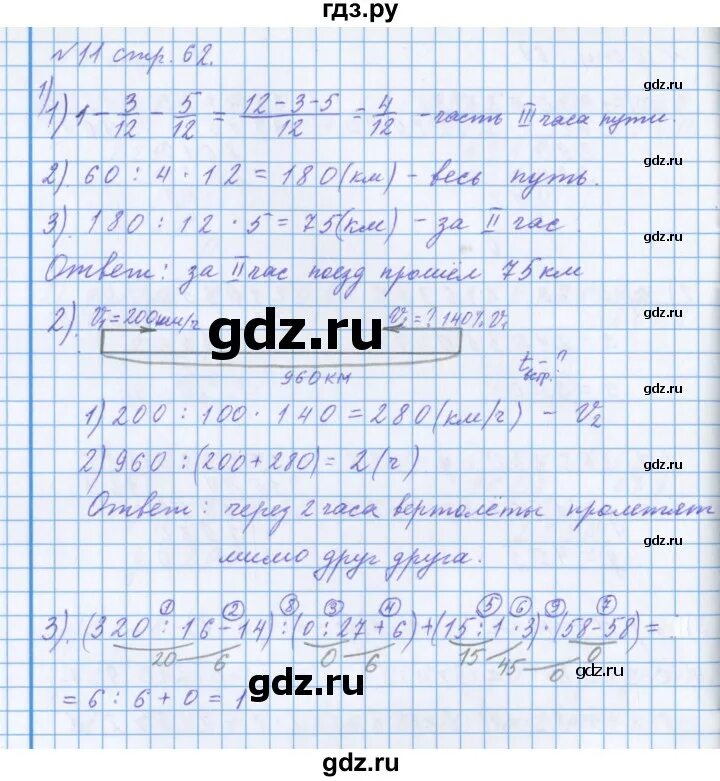 гдз.ру
№11 стр. 62.
1)
1) 1 - 3/12 - 5/12 = (12 - 3 - 5)/12 = 4/12 - часть III часа пути.
gdz.ru
gdz.ru
2) 60 : 4 · 12 = 180 (км) - весь путь.
3) 180 : 12 · 5 = 75 (км) - за II час.
gdz.ru
Ответ: за II час поезд прошёл 75 км
2). V₁ = 200 км/ч V₂ = ? 140% V₁
gdz.ru
gdz.ru
960 км tвстр. - ?
gdz.ru
1) 200 : 100 · 140 = 280 (км/ч) - V₂
2) 960 : (200 + 280) = 2 (ч)
gdz.ru
Ответ: через 2 часа вертолёты пролетят
gdz.ru
мимо друг друга.
1 2 8 3 4 5 6 9 7
3). (320 : 16 - 14) : (0 : 27 + 6) + (15 : 1 · 3) · (58 - 58) =
20 6 0 6 15 45 0 0
gdz.ru
= 6 : 6 + 0 = 1
gdz.ru
gdz.ru